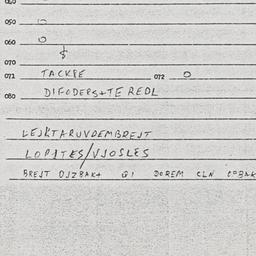 050 0
060 0
070 $
071 TACKPE 072 0
080 DIFODERS+TE REDL
LEJKTARUVDEMBREJT
LOPITES/VJOSLES
BREJT DJZBAK+ GI DOREM CLN